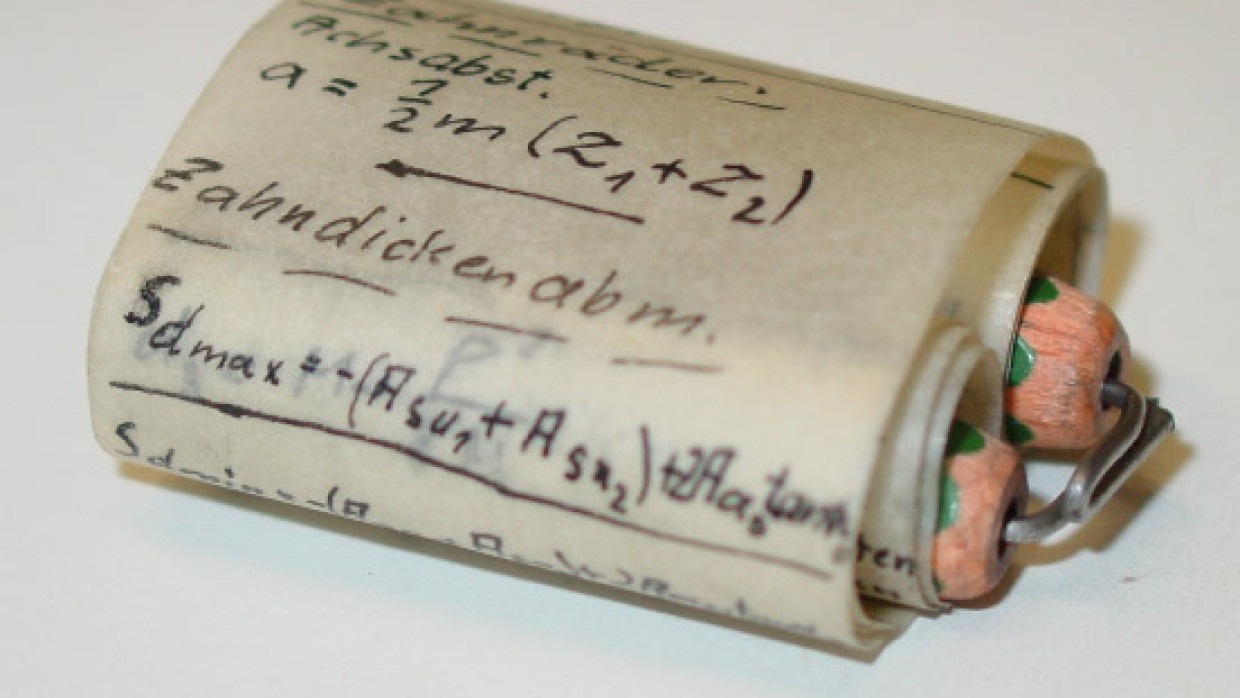 Zahnräder.
Achsabst.
a = 1/2 m (Z₁+Z₂)
Zahndickenabm.
Sdmax = -(Asu₁+Asu₂)+2Aa₀tanα₀
Sdmin = -(A
ten